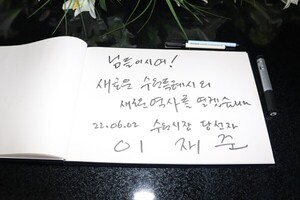 님들이시여!
새로운 수원특례시의
새로운 역사를 열겠습니다
22.06.02 수원시장 당선자
이 재 준